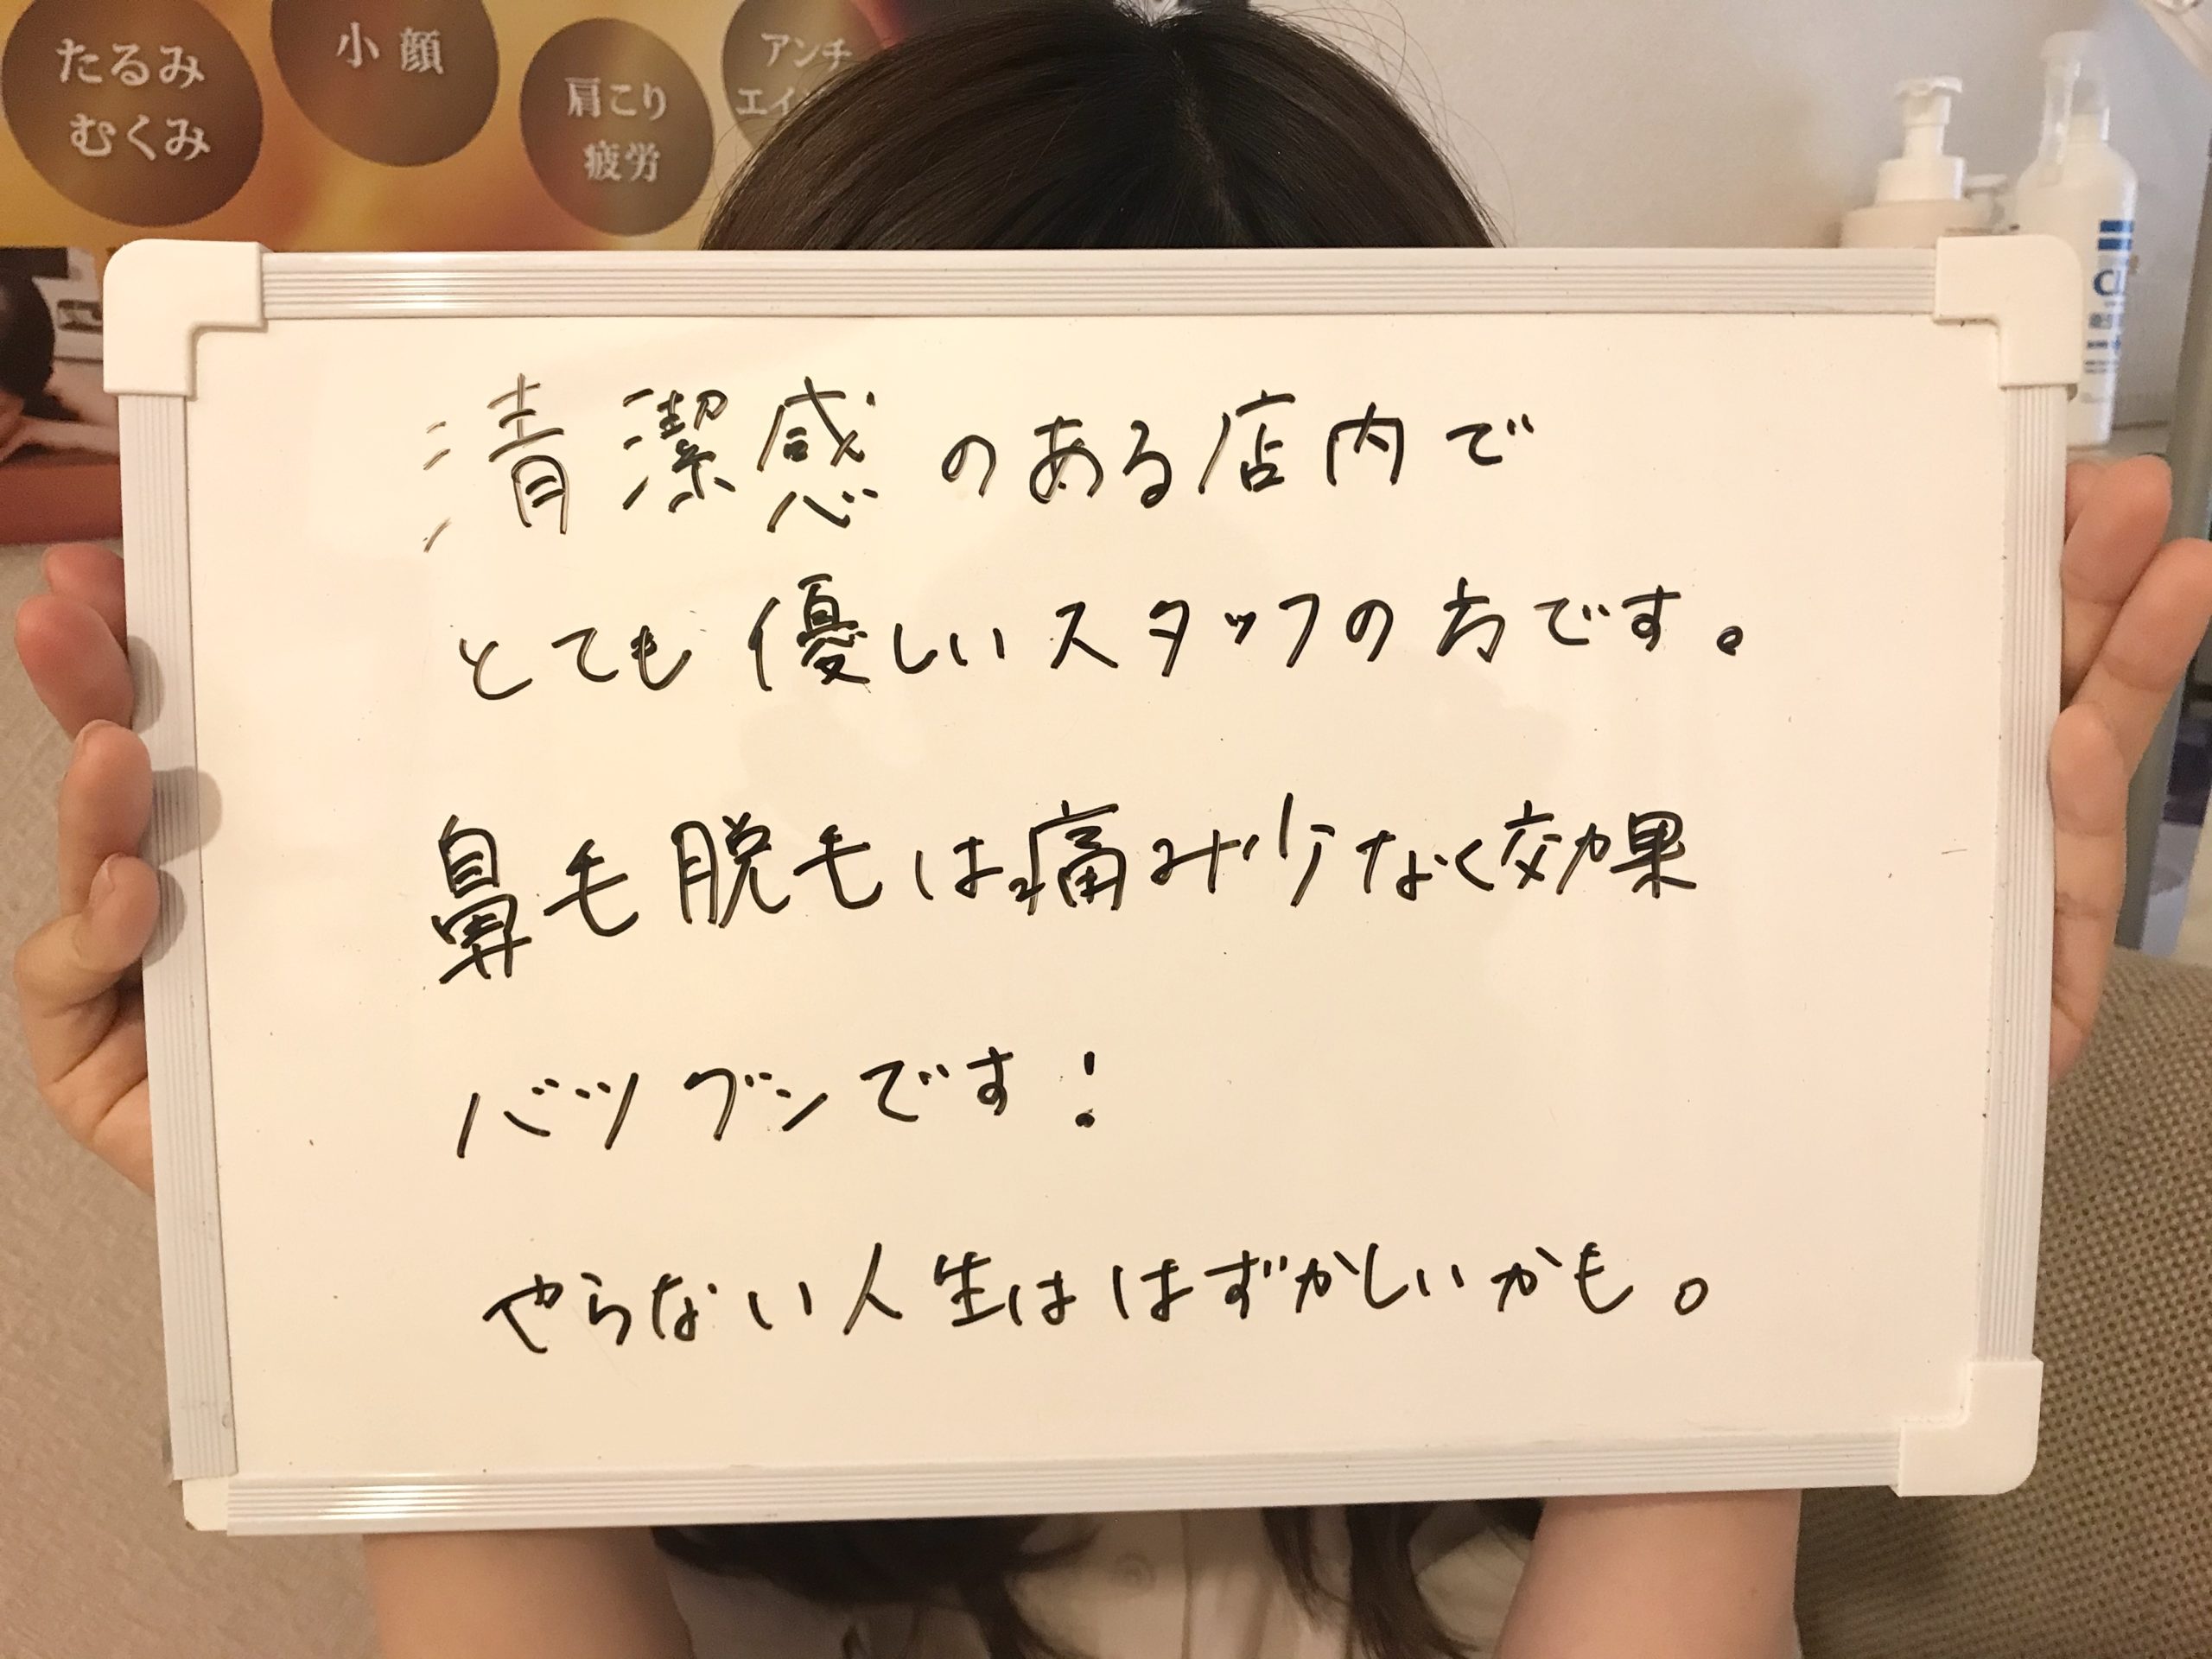 たるみ
むくみ
小顔
肩こり
疲労
アンチ
清潔感のある店内で
とても優しいスタッフの方です。
鼻毛脱毛は痛みが少なく効果
バツグンです!
やらない人生ははずかしいかも。